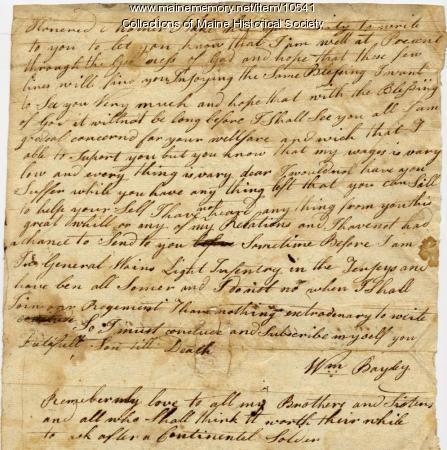 www.mainememory.net/item/10541
Collections of Maine Historical Society
Honored to write
to you to let you know that I am well at Present
through the of God and hope that these few
lines will find you Injoying the Same Blessing I want
to See you Very much and hope that with the Blessing
of God it will not be long before I Shall See you all I am
great concernd for your wellfare and wich that I
able to Suport you but you know that my wages is vary
low and every thing is vary dear I would not have you
Suffer while you have any thing left that you can Sell
to help your Self I have not heard any thing from you this
great while or any of my Relations and I have not had
a chance to Send to you Sometime Before I am
In General Wains Light Infentry in the and
have ben all Somer and I do not no when I Shall
Join our Regiment I have nothing extrodenary to write
So I must conclude and Subscribe myself you
Dutifull Son till Death
Wm Bayley
Remember my love to all my Brothers and Sisters
and all who Shall think it worth their while
to ask after a Continental Solder